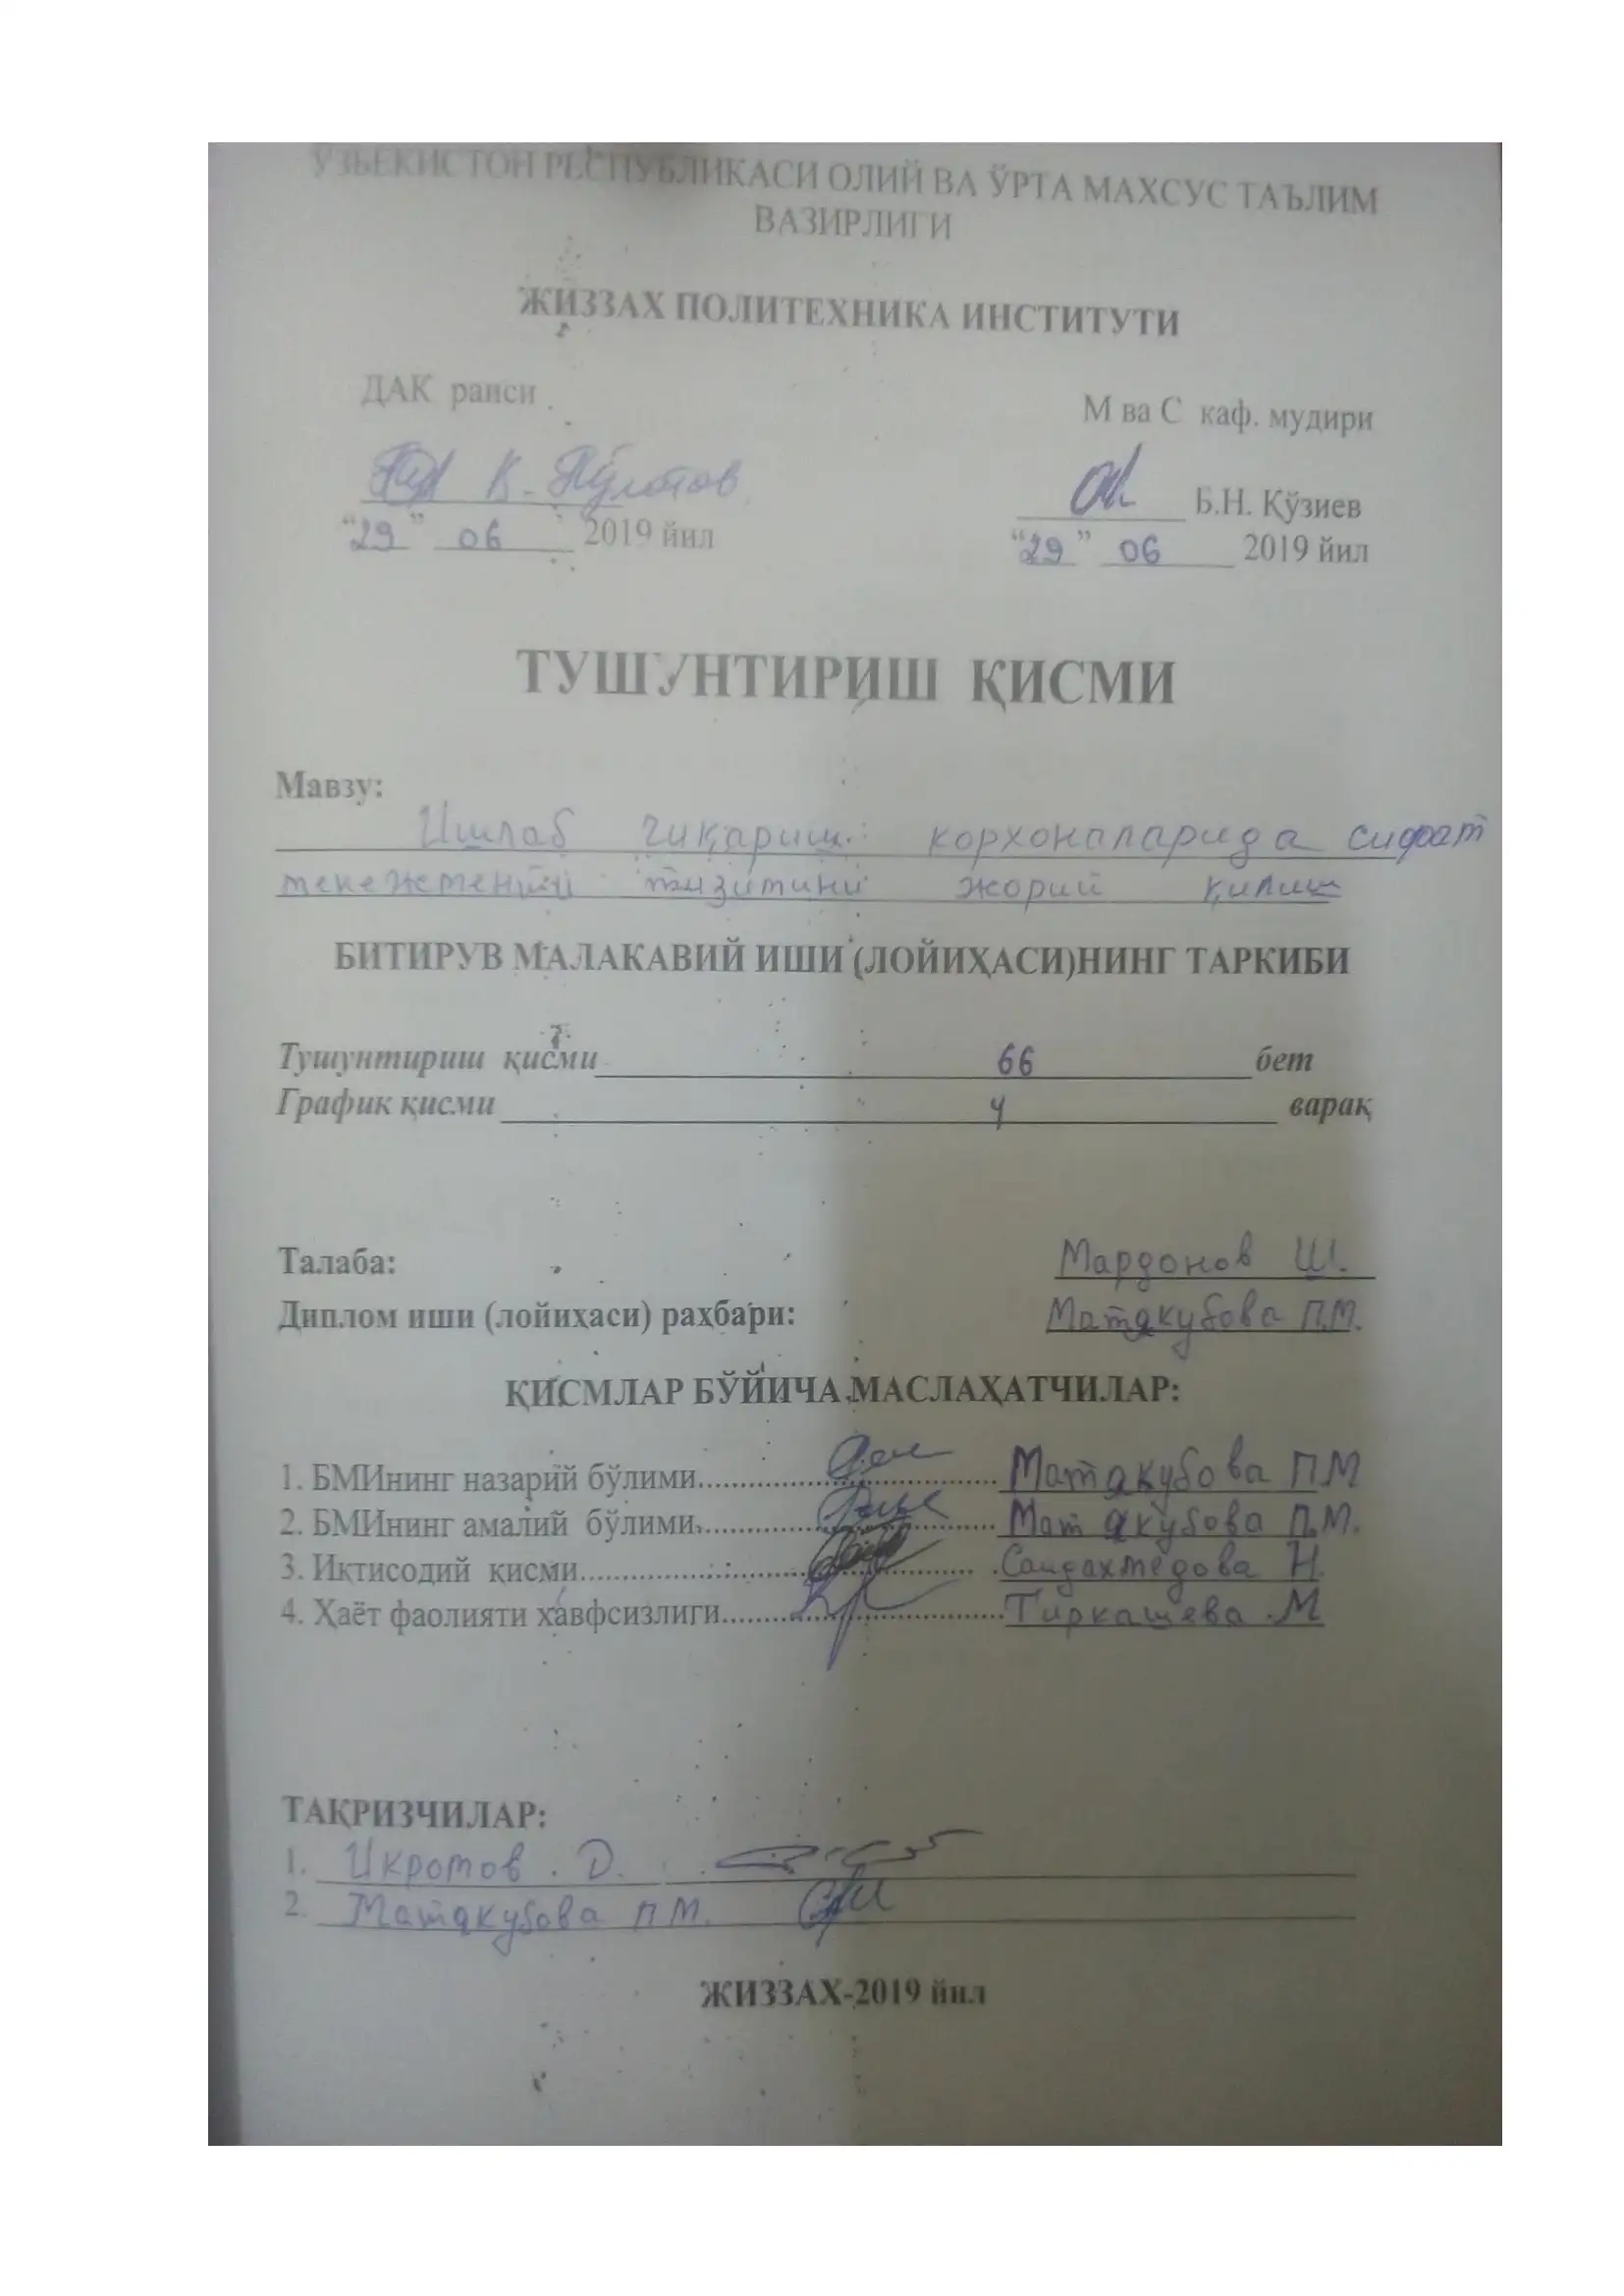 ЎЗБЕКИСТОН РЕСПУБЛИКАСИ ОЛИЙ ВА ЎРТА МАХСУС ТАЪЛИМ
ВАЗИРЛИГИ
ЖИЗЗАХ ПОЛИТЕХНИКА ИНСТИТУТИ
ДАК раиси
М ва С каф. мудири
К. Пўлатов
Б.Н. Қўзиев
“29” 06 2019 йил
“29” 06 2019 йил
ТУШУНТИРИШ ҚИСМИ
Мавзу:
Ишлаб чиқариш корхоналарида сифат
менежменти тизимини жорий қилиш
БИТИРУВ МАЛАКАВИЙ ИШИ (ЛОЙИҲАСИ)НИНГ ТАРКИБИ
Тушунтириш қисми 66 бет
График қисми 4 варақ
Талаба: Мардонов Ш.
Диплом иши (лойиҳаси) раҳбари: Матякубова П.М.
ҚИСМЛАР БЎЙИЧА МАСЛАҲАТЧИЛАР:
1. БМИнинг назарий бўлими Матякубова П М
2. БМИнинг амалий бўлими Матякубова П.М.
3. Иқтисодий қисми Саидахмедова Н.
4. Ҳаёт фаолияти хавфсизлиги Тиркашева М
ТАҚРИЗЧИЛАР:
1. Икромов Д.
2. Матякубова П М.
ЖИЗЗАХ-2019 йил